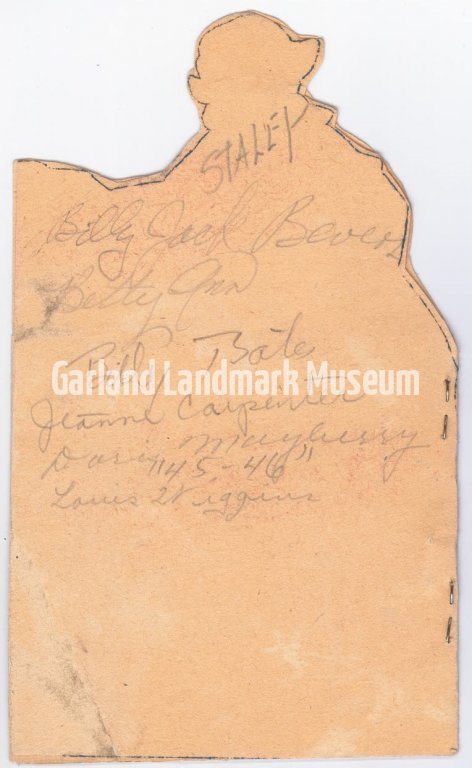 STALEY
Billy Jack Bevers
Betty Ann
Billy Bates
Garland Landmark Museum
Jeanne Carpenter
Doris Mayberry
"45-46"
Louis Wiggins